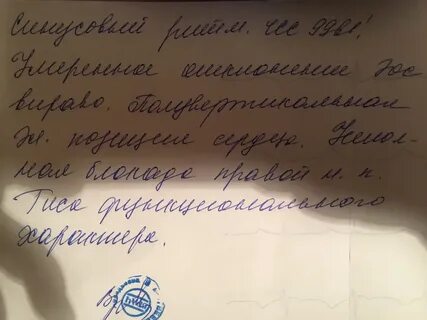 Синусовый ритм. ЧСС 99 в 1'
Умеренное отклонение Эос
вправо. Полувертикальная
Эл. позиция сердца. Непол-
ная блокада правой н. п.
Гиса функционального
характера.
Вр